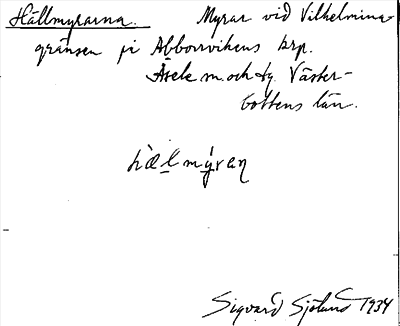 Hällmyrarna. Myrar vid Vilhelmina-
gränsen på Abborrvikens krp.
Åsele m. och tg. Väster-
bottens län.
hæ̀lmýran
Sigvard Sjölund 1934